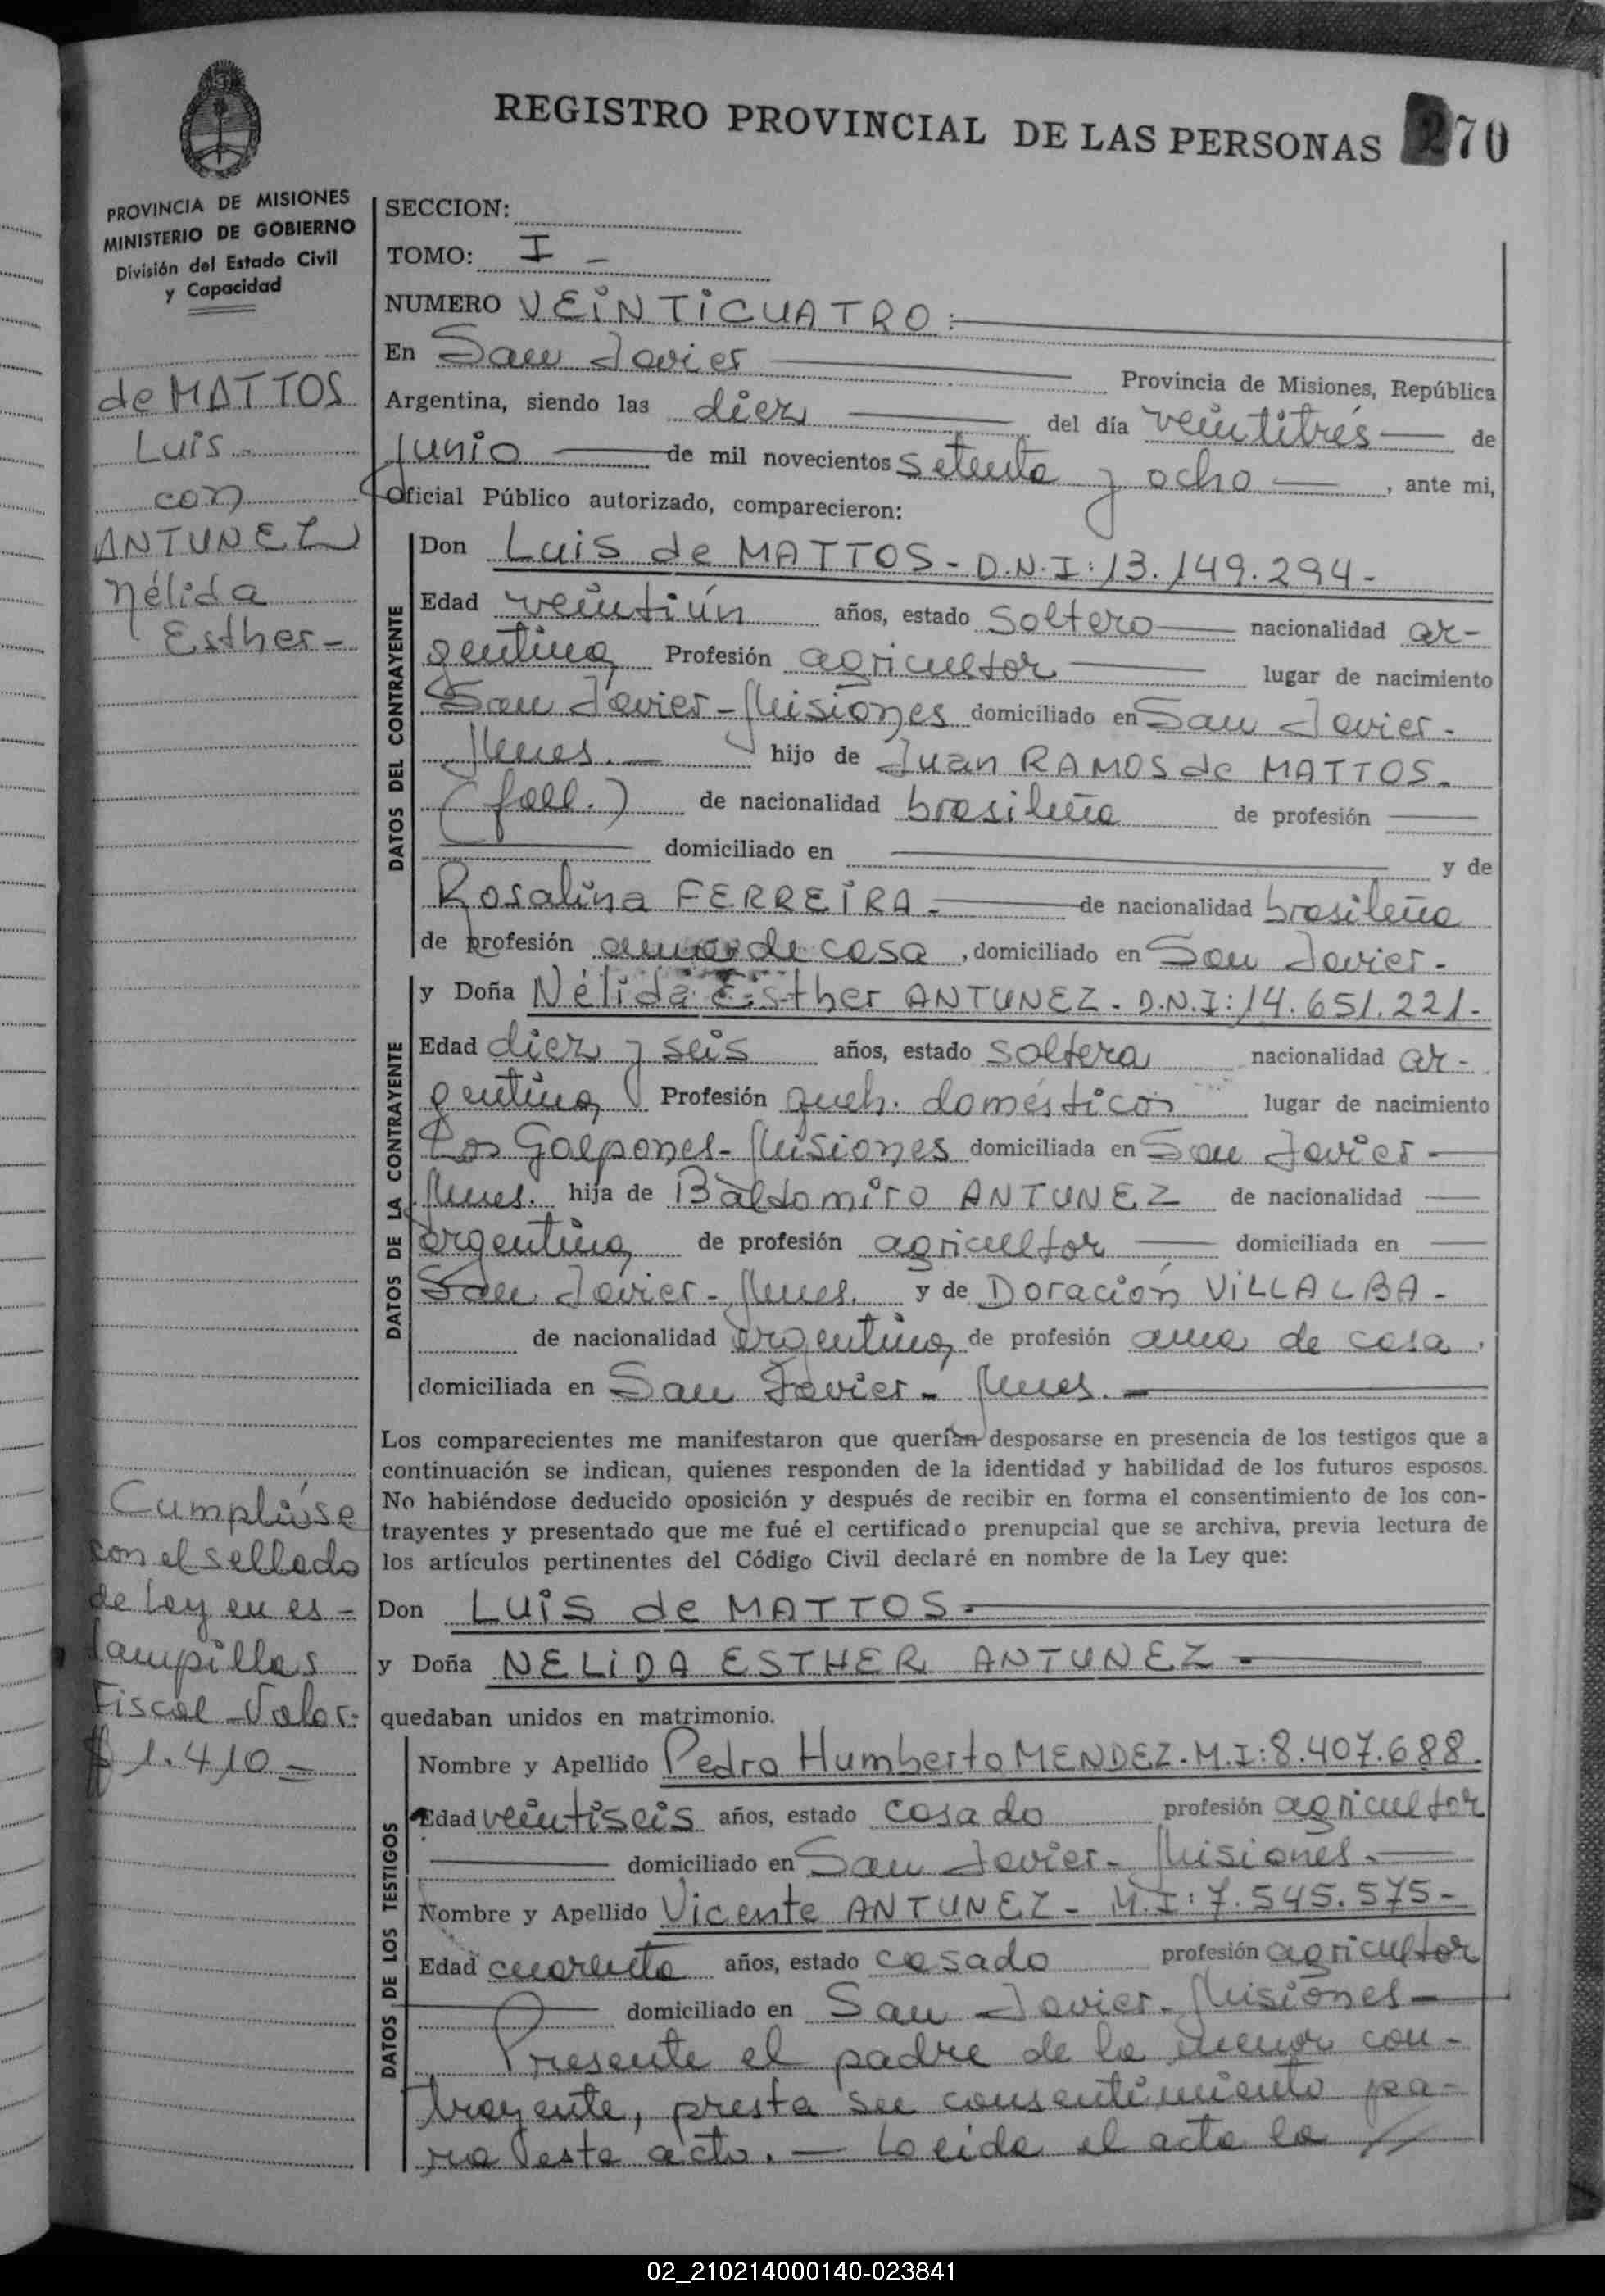 REGISTRO PROVINCIAL DE LAS PERSONAS 270
PROVINCIA DE MISIONES
MINISTERIO DE GOBIERNO
División del Estado Civil
y Capacidad
de MATTOS
Luis
con
ANTUNEZ
Nélida
Esther-
Cumplióse
con el sellado
de Ley en es-
tampillas
Fiscal Valor:
$ 1.410=
SECCION:
TOMO: I -
NUMERO VEINTICUATRO:
En San Javier Provincia de Misiones, República
Argentina, siendo las diez del día veintitrés de
junio de mil novecientos setenta y ocho, ante mi,
Oficial Público autorizado, comparecieron:
DATOS DEL CONTRAYENTE
Don Luis de MATTOS - D.N.I: 13.149.294-
Edad veintiún años, estado soltero nacionalidad ar-
gentina Profesión agricultor lugar de nacimiento
San Javier - Misiones domiciliado en San Javier-
Mnes. hijo de Juan RAMOS de MATTOS-
(fall.) de nacionalidad brasileña de profesión
domiciliado en y de
Rosalina FERREIRA- de nacionalidad brasileña
de profesión ama de casa, domiciliado en San Javier-
DATOS DE LA CONTRAYENTE
y Doña Nélida Esther ANTUNEZ - D.N.I: 14.651.221-
Edad diez y seis años, estado soltera nacionalidad ar-
gentina Profesión queh. domésticos lugar de nacimiento
Los Galpones - Misiones domiciliada en San Javier-
Mnes. hija de Baldomiro ANTUNEZ de nacionalidad
argentina de profesión agricultor domiciliada en
San Javier - Mnes. y de Doración VILLALBA-
de nacionalidad argentina de profesión ama de casa,
domiciliada en San Javier - Mnes.-
Los comparecientes me manifestaron que querían desposarse en presencia de los testigos que a
continuación se indican, quienes responden de la identidad y habilidad de los futuros esposos.
No habiéndose deducido oposición y después de recibir en forma el consentimiento de los con-
trayentes y presentado que me fué el certificado prenupcial que se archiva, previa lectura de
los artículos pertinentes del Código Civil declaré en nombre de la Ley que:
Don LUIS de MATTOS.
y Doña NELIDA ESTHER ANTUNEZ-
quedaban unidos en matrimonio.
DATOS DE LOS TESTIGOS
Nombre y Apellido Pedro Humberto MENDEZ - M.I: 8.407.688.
Edad veintiseis años, estado casado profesión agricultor
domiciliado en San Javier - Misiones.-
Nombre y Apellido Vicente ANTUNEZ - M.I: 7.545.575-
Edad cuarenta años, estado casado profesión agricultor
domiciliado en San Javier - Misiones-
Presente el padre de la menor con-
trayente, presta su consentimiento pa-
ra este acto.- Leída el acta la //
02_210214000140-023841